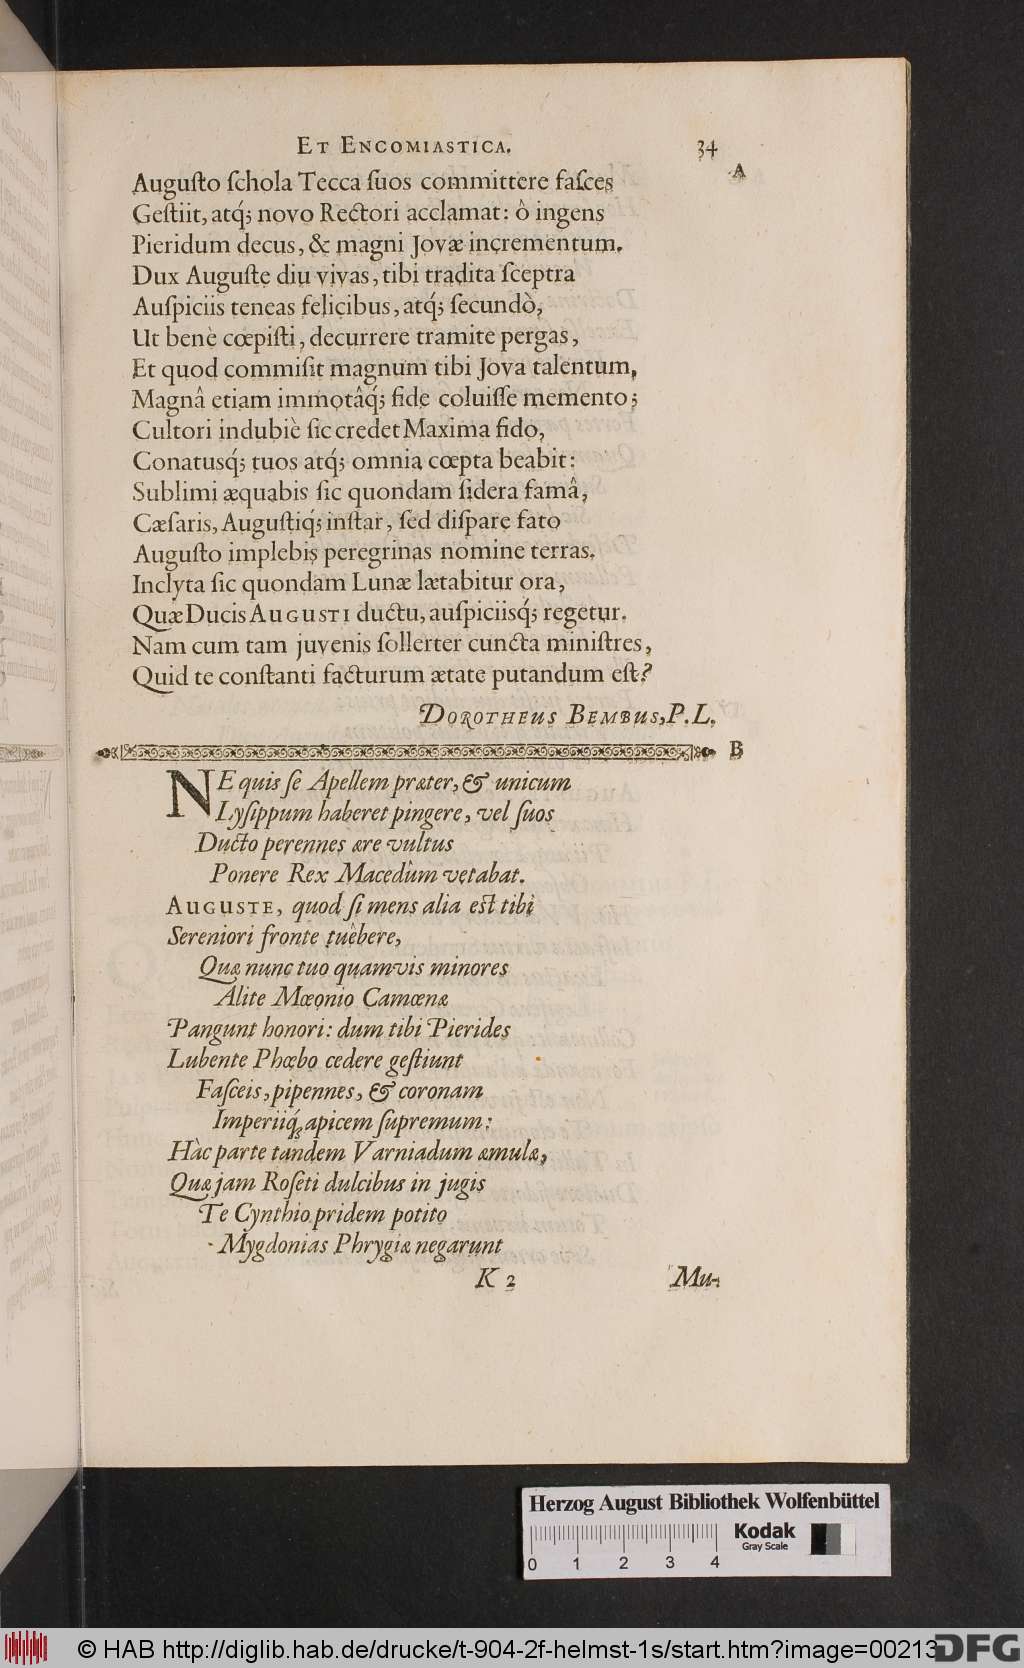 ET ENCOMIASTICA. 34
A
Auguſto ſchola Tecca ſuos committere faſces
Geſtiit, atq́; novo Rectori acclamat: ô ingens
Pieridum decus, & magni Jovæ incrementum.
Dux Auguſte diu vivas, tibi tradita ſceptra
Auſpiciis teneas felicibus, atq́; ſecundò,
Ut benè cœpiſti, decurrere tramite pergas,
Et quod commiſit magnum tibi Jova talentum,
Magnâ etiam immotâq́; fide coluiſſe memento;
Cultori indubiè ſic credet Maxima fido,
Conatusq́; tuos atq́; omnia cœpta beabit:
Sublimi æquabis ſic quondam ſidera famâ,
Cæſaris, Auguſtiq́; inſtar, ſed diſpare fato
Auguſto implebis peregrinas nomine terras.
Inclyta ſic quondam Lunæ lætabitur ora,
Quæ Ducis AUGUSTI ductu, auſpiciisq́; regetur.
Nam cum tam juvenis ſollerter cuncta miniſtres,
Quid te conſtanti facturum ætate putandum eſt?
DOROTHEUS BEMBUS, P. L.
B
NE quis ſe Apellem præter, & unicum
Lyſippum haberet pingere, vel ſuos
Ducto perennes ære vultus
Ponere Rex Macedûm vetabat.
AUGUSTE, quod ſi mens alia eſt tibi
Sereniori fronte tuêbere,
Quæ nunc tuo quamvis minores
Alite Mæonio Camœnæ
Pangunt honori: dum tibi Pierides
Lubente Phœbo cedere geſtiunt
Faſceis, pipennes, & coronam
Imperiiq́; apicem ſupremum:
Hàc parte tandem Varniadum æmulæ,
Quæ jam Roſeti dulcibus in jugis
Te Cynthio pridem potito
Mygdonias Phrygiæ negarunt
K 2 Mu-
Herzog August Bibliothek Wolfenbüttel
Kodak
Gray Scale
0 1 2 3 4
© HAB http://diglib.hab.de/drucke/t-904-2f-helmst-1s/start.htm?image=00213
DFG